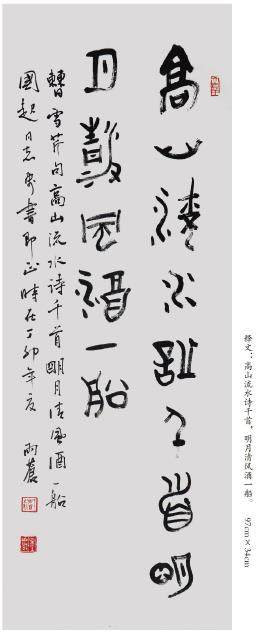 释文：高山流水诗千首，明月清风酒一船。 97cm×34cm
高山流水诗千首明
月清风酒一船
曹雪芹句高山流水诗千首明月清风酒一船
國起同志書即正時在丁卯年夏